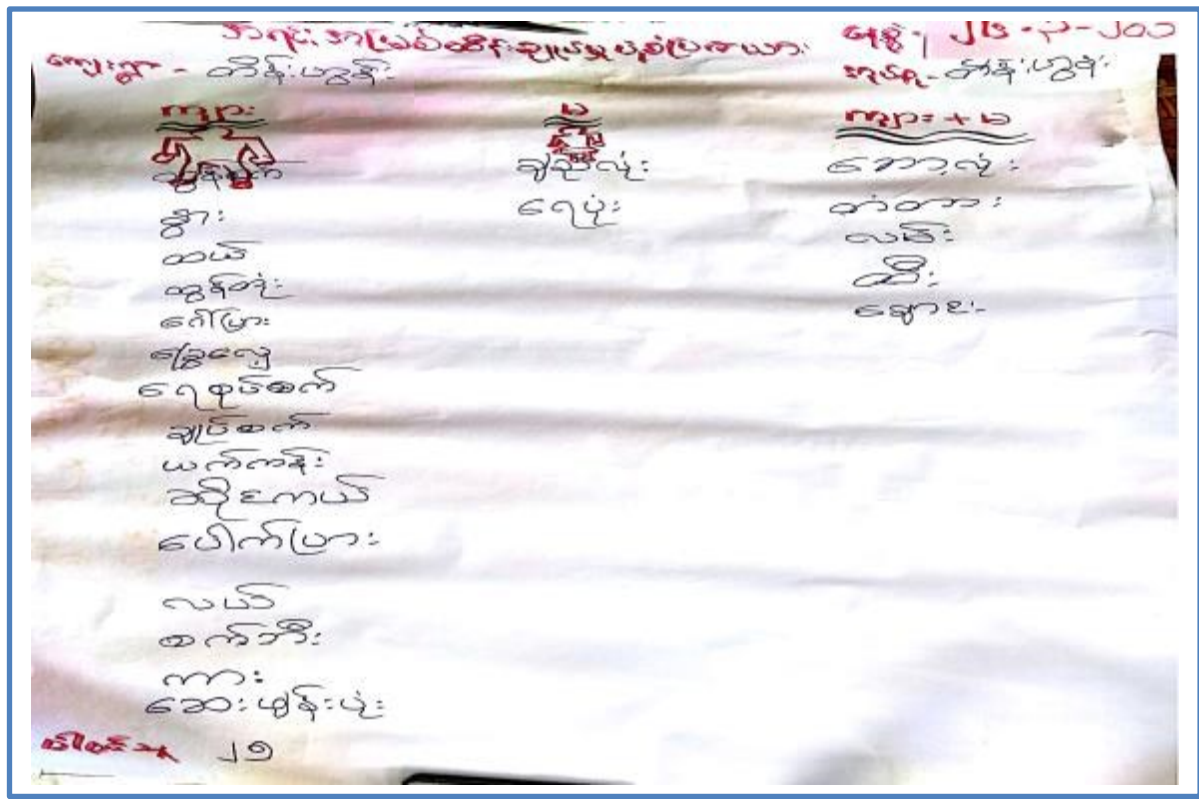 အရင်းအမြစ်ထိန်းချုပ်မှုပုံစံပြဇယား
နေ့စွဲ - ၂၆ - ၃ - ၂၀၁
ကျေးရွာ - တိန်းဟွန်း
အုပ်စု - တိန်းဟွန်း
ကျား
ထွန်စက်
နွား
ထယ်
ထွန်တုံး
ဂေါ်ပြား
ခြွေလှေ့
ရေစုပ်စက်
ချုပ်စက်
ယက်ကန်း
ဆိုင်ကယ်
ပေါက်ပြား
လယ်
စက်ဘီး
ကား
ဆေးဖျန်းပုံး
မ
ချည်လုံး
ရေပုံး
ကျား + မ
ဘော့လုံး
တံတား
လမ်း
ထီး
ချောင်း
ပါဝင်သူ ၂၅